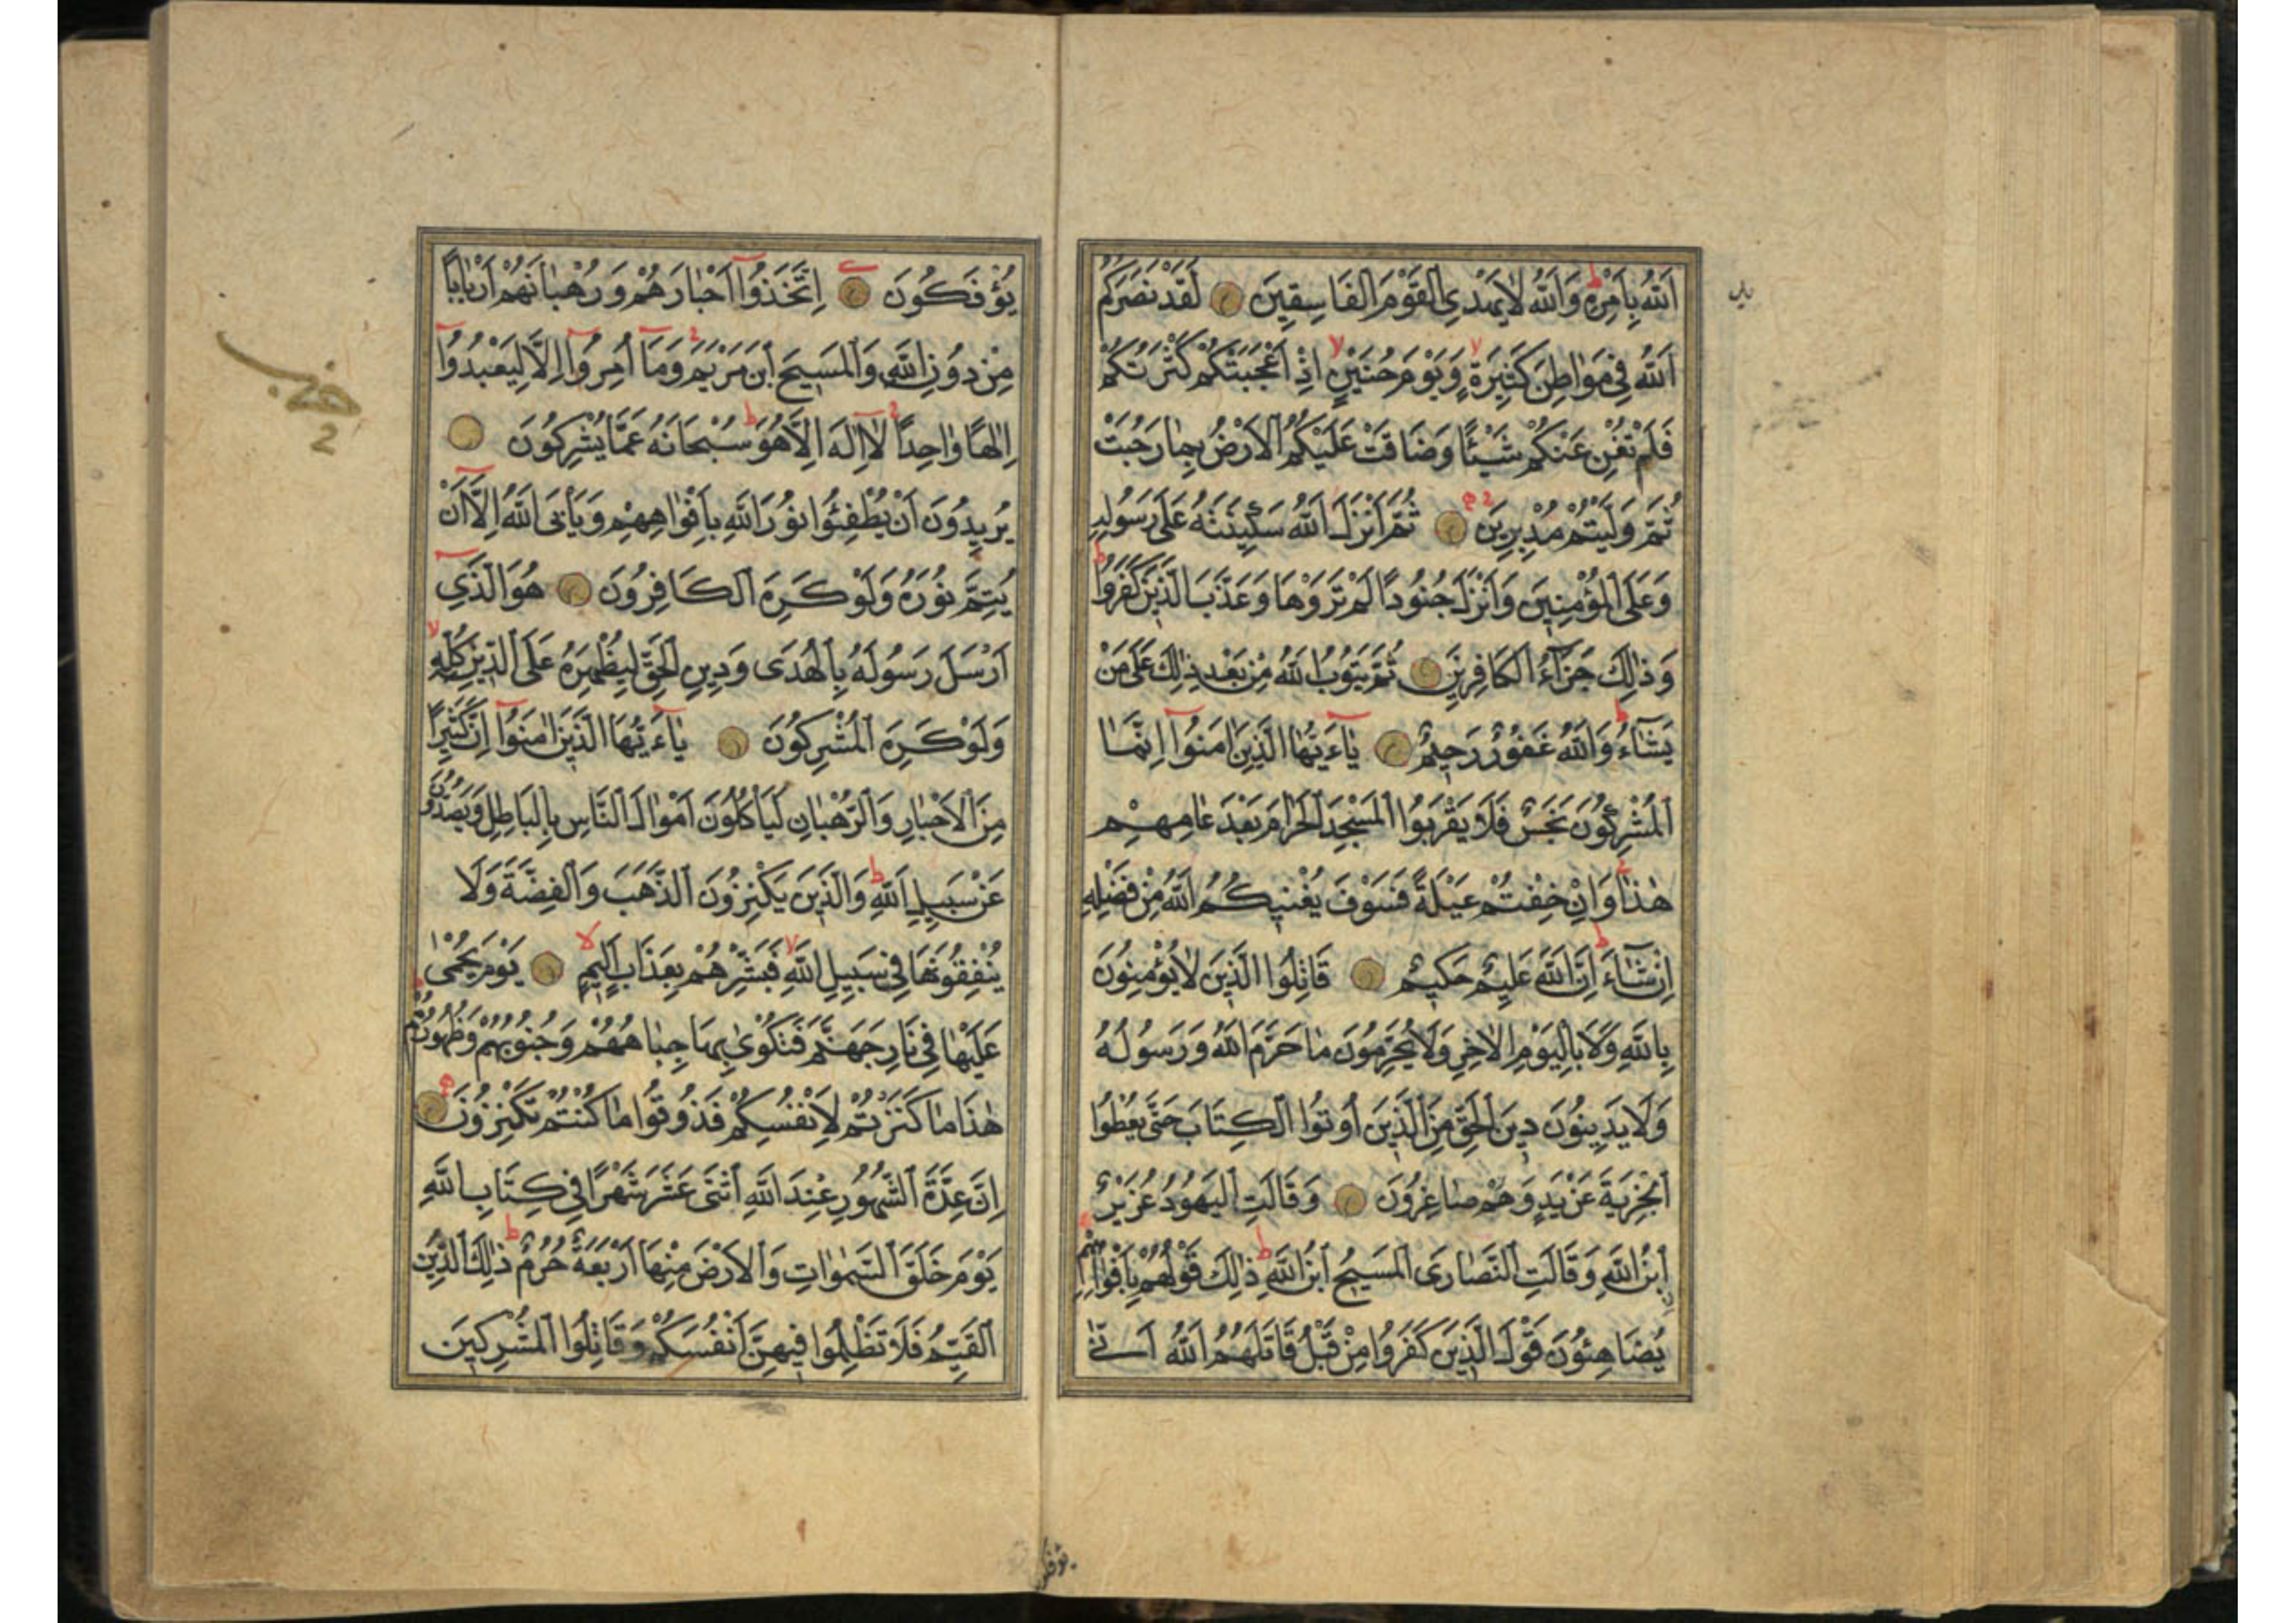 اَللّٰهُ بِاَمْرِهِ وَاللّٰهُ لَا يَهْدِي الْقَوْمَ الْفَاسِقِينَ لَقَدْ نَصَرَكُمُ
اَللّٰهُ فِي مَوَاطِنَ كَثِيرَةٍ وَيَوْمَ حُنَيْنٍ اِذْ اَعْجَبَتْكُمْ كَثْرَتُكُمْ
فَلَمْ تُغْنِ عَنْكُمْ شَيْئًا وَضَاقَتْ عَلَيْكُمُ الْاَرْضُ بِمَا رَحُبَتْ
ثُمَّ وَلَّيْتُمْ مُدْبِرِينَ ثُمَّ اَنْزَلَ اللّٰهُ سَكِينَتَهُ عَلَى رَسُولِهِ
وَعَلَى الْمُؤْمِنِينَ وَاَنْزَلَ جُنُودًا لَمْ تَرَوْهَا وَعَذَّبَ الَّذِينَ كَفَرُوا
وَذٰلِكَ جَزَآءُ الْكَافِرِينَ ثُمَّ يَتُوبُ اللّٰهُ مِنْ بَعْدِ ذٰلِكَ عَلَى مَنْ
يَشَآءُ وَاللّٰهُ غَفُورٌ رَحِيمٌ يَآءَيُّهَا الَّذِينَ اٰمَنُوٓا اِنَّمَا
الْمُشْرِكُونَ نَجَسٌ فَلَا يَقْرَبُوا الْمَسْجِدَ الْحَرَامَ بَعْدَ عَامِهِمْ
هٰذَا وَاِنْ خِفْتُمْ عَيْلَةً فَسَوْفَ يُغْنِيكُمُ اللّٰهُ مِنْ فَضْلِهِ
اِنْ شَآءَ اِنَّ اللّٰهَ عَلِيمٌ حَكِيمٌ قَاتِلُوا الَّذِينَ لَا يُؤْمِنُونَ
بِاللّٰهِ وَلَا بِالْيَوْمِ الْاٰخِرِ وَلَا يُحَرِّمُونَ مَا حَرَّمَ اللّٰهُ وَرَسُولُهُ
وَلَا يَدِينُونَ دِينَ الْحَقِّ مِنَ الَّذِينَ اُوتُوا الْكِتَابَ حَتَّى يُعْطُوا
الْجِزْيَةَ عَنْ يَدٍ وَهُمْ صَاغِرُونَ وَقَالَتِ الْيَهُودُ عُزَيْرٌ
ابْنُ اللّٰهِ وَقَالَتِ النَّصَارَى الْمَسِيحُ ابْنُ اللّٰهِ ذٰلِكَ قَوْلُهُمْ بِاَفْوَاهِهِمْ
يُضَاهِئُونَ قَوْلَ الَّذِينَ كَفَرُوا مِنْ قَبْلُ قَاتَلَهُمُ اللّٰهُ اَنّٰى
يُؤْفَكُونَ اِتَّخَذُوٓا اَحْبَارَهُمْ وَرُهْبَانَهُمْ اَرْبَابًا
مِنْ دُونِ اللّٰهِ وَالْمَسِيحَ ابْنَ مَرْيَمَ وَمَآ اُمِرُوٓا اِلَّا لِيَعْبُدُوٓا
اِلٰهًا وَاحِدًا لَآ اِلٰهَ اِلَّا هُوَ سُبْحَانَهُ عَمَّا يُشْرِكُونَ
يُرِيدُونَ اَنْ يُطْفِئُوا نُورَ اللّٰهِ بِاَفْوَاهِهِمْ وَيَأْبَى اللّٰهُ اِلَّآ اَنْ
يُتِمَّ نُورَهُ وَلَوْ كَرِهَ الْكَافِرُونَ هُوَ الَّذِي
اَرْسَلَ رَسُولَهُ بِالْهُدَى وَدِينِ الْحَقِّ لِيُظْهِرَهُ عَلَى الدِّينِ كُلِّهِ
وَلَوْ كَرِهَ الْمُشْرِكُونَ يَآءَيُّهَا الَّذِينَ اٰمَنُوٓا اِنَّ كَثِيرًا
مِنَ الْاَحْبَارِ وَالرُّهْبَانِ لَيَأْكُلُونَ اَمْوَالَ النَّاسِ بِالْبَاطِلِ وَيَصُدُّونَ
عَنْ سَبِيلِ اللّٰهِ وَالَّذِينَ يَكْنِزُونَ الذَّهَبَ وَالْفِضَّةَ وَلَا
يُنْفِقُونَهَا فِي سَبِيلِ اللّٰهِ فَبَشِّرْهُمْ بِعَذَابٍ اَلِيمٍ يَوْمَ يُحْمٰى
عَلَيْهَا فِي نَارِ جَهَنَّمَ فَتُكْوٰى بِهَا جِبَاهُهُمْ وَجُنُوبُهُمْ وَظُهُورُهُمْ
هٰذَا مَا كَنَزْتُمْ لِاَنْفُسِكُمْ فَذُوقُوا مَا كُنْتُمْ تَكْنِزُونَ
اِنَّ عِدَّةَ الشُّهُورِ عِنْدَ اللّٰهِ اثْنَى عَشَرَ شَهْرًا فِي كِتَابِ اللّٰهِ
يَوْمَ خَلَقَ السَّمٰوَاتِ وَالْاَرْضَ مِنْهَا اَرْبَعَةٌ حُرُمٌ ذٰلِكَ الدِّينُ
الْقَيِّمُ فَلَا تَظْلِمُوا فِيهِنَّ اَنْفُسَكُمْ وَقَاتِلُوا الْمُشْرِكِينَ
حزب
2